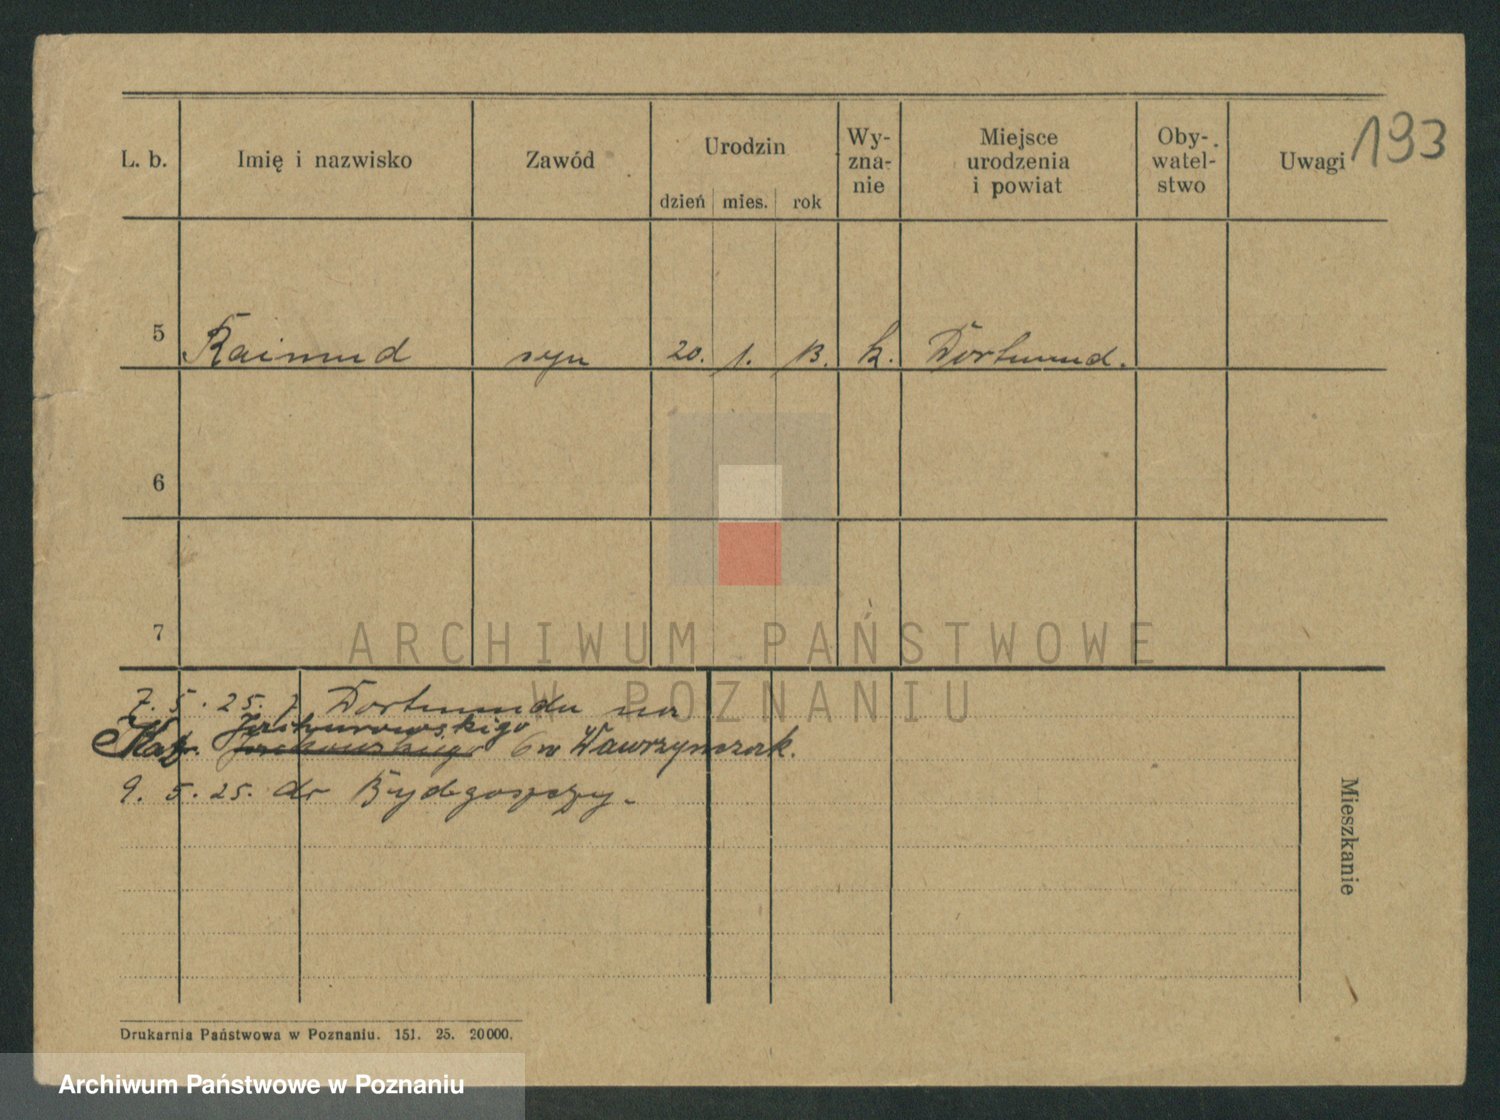 193
L. b. Imię i nazwisko Zawód Urodzin Wy- Miejsce Oby- Uwagi
zna- urodzenia watel-
nie i powiat stwo
dzień mies. rok
5 Raimund syn 20. 1. 13. k. Dortmund.
6
7
ARCHIWUM PAŃSTWOWE
W POZNANIU
7. 5. 25. z Dortmundu na
6 w Wawrzyniak.
9. 5. 25. do Bydgoszczy
Mieszkanie
Drukarnia Państwowa w Poznaniu. 151. 25. 20000.
Archiwum Państwowe w Poznaniu